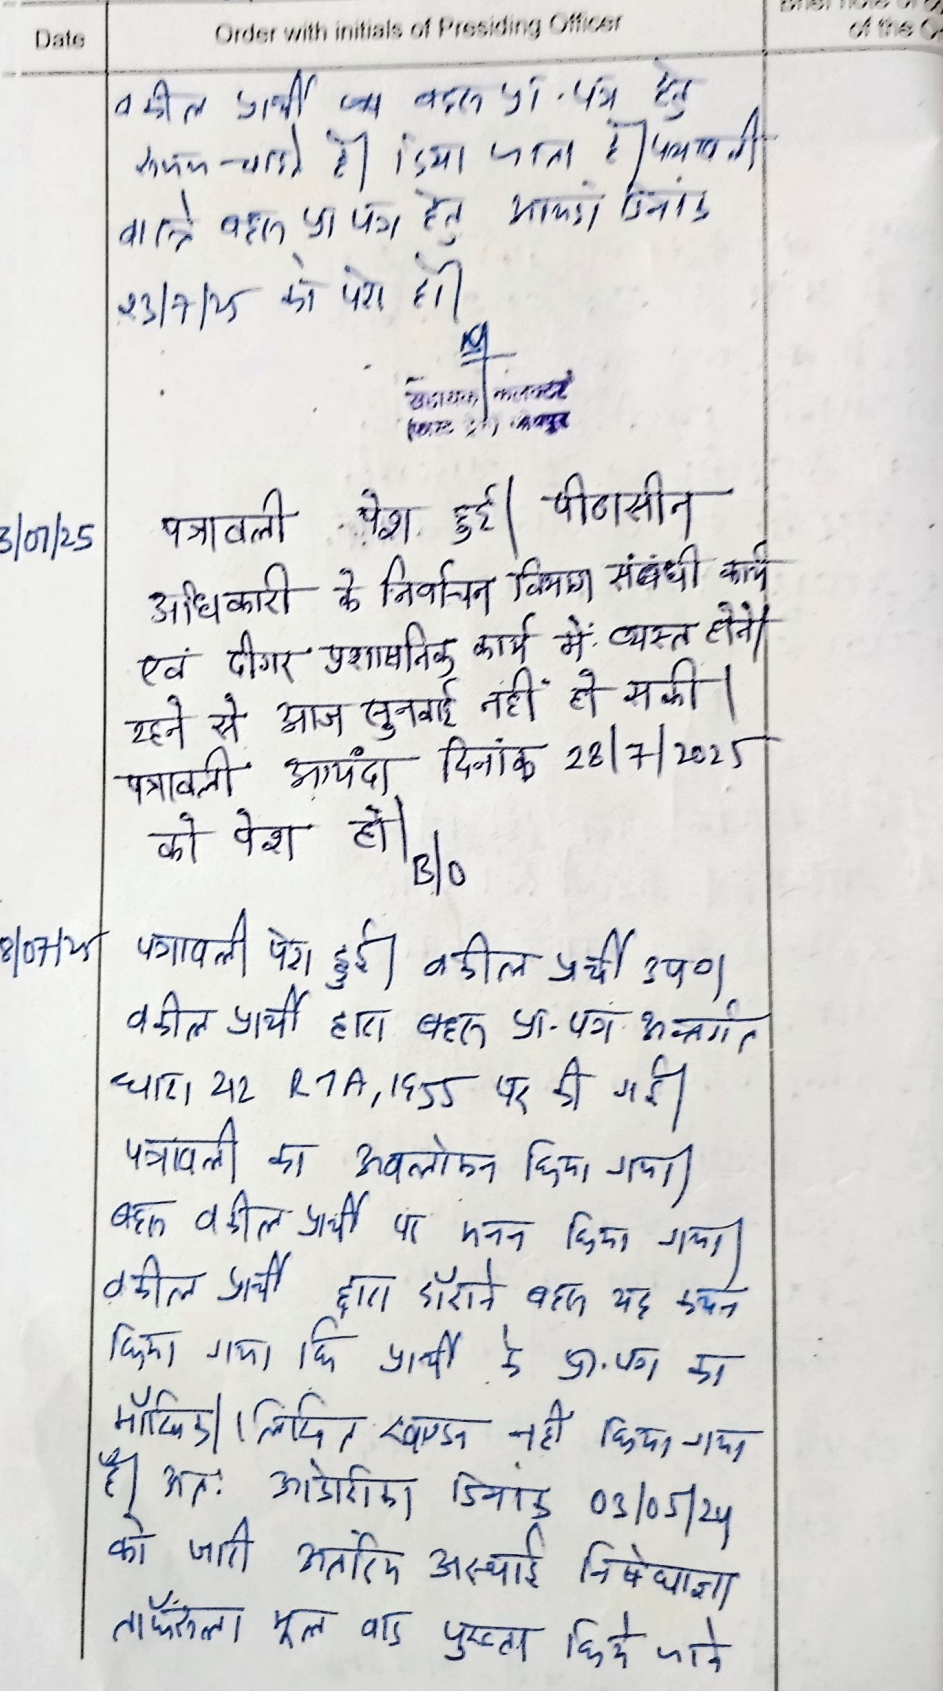 Date
Order with initials of Presiding Officer
of the
वकील प्रार्थी बहस प्रा. पत्र हेतु
चाहते है। दिया जाता है। पत्रावली
वास्ते बहस प्रा पत्र हेतु आयंदा दिनांक
23/7/25 को पेश हो।
सहायक कलक्टर
3/07/25
पत्रावली पेश हुई। पीठासीन
अधिकारी के निर्वाचन विभाग संबंधी कार्य
एवं दीगर प्रशासनिक कार्य में व्यस्त होने/
रहने से आज सुनवाई नहीं हो सकी।
पत्रावली आयंदा दिनांक 28/7/2025
को पेश हो।
B/O
8/07/25
पत्रावली पेश हुई। वकील प्रार्थी उप०।
वकील प्रार्थी द्वारा बहस प्रा. पत्र अन्तर्गत
धारा 212 RTA, 1955 पर की गई।
पत्रावली का अवलोकन किया गया।
बहस वकील प्रार्थी पर मनन किया गया।
वकील प्रार्थी द्वारा दौराने बहस यह कथन
किया गया कि प्रार्थी के प्रा. पत्र का
मौखिक/लिखित खण्डन नहीं किया गया
है। अतः आदेशिका दिनांक 03/05/24
को जारी अंतरिम अस्थाई निषेधाज्ञा
ताफैसला मूल वाद पुख्ता किये जाने